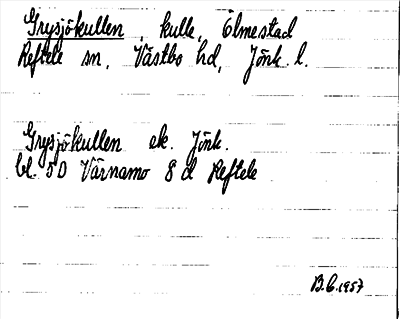 Grysjökullen, kulle, Ölmestad
Reftele sn, Västbo hd, Jönk. l.
Grysjökullen ek. Jönk.
bl. 50 Värnamo 8 d Reftele
B.C. 1957